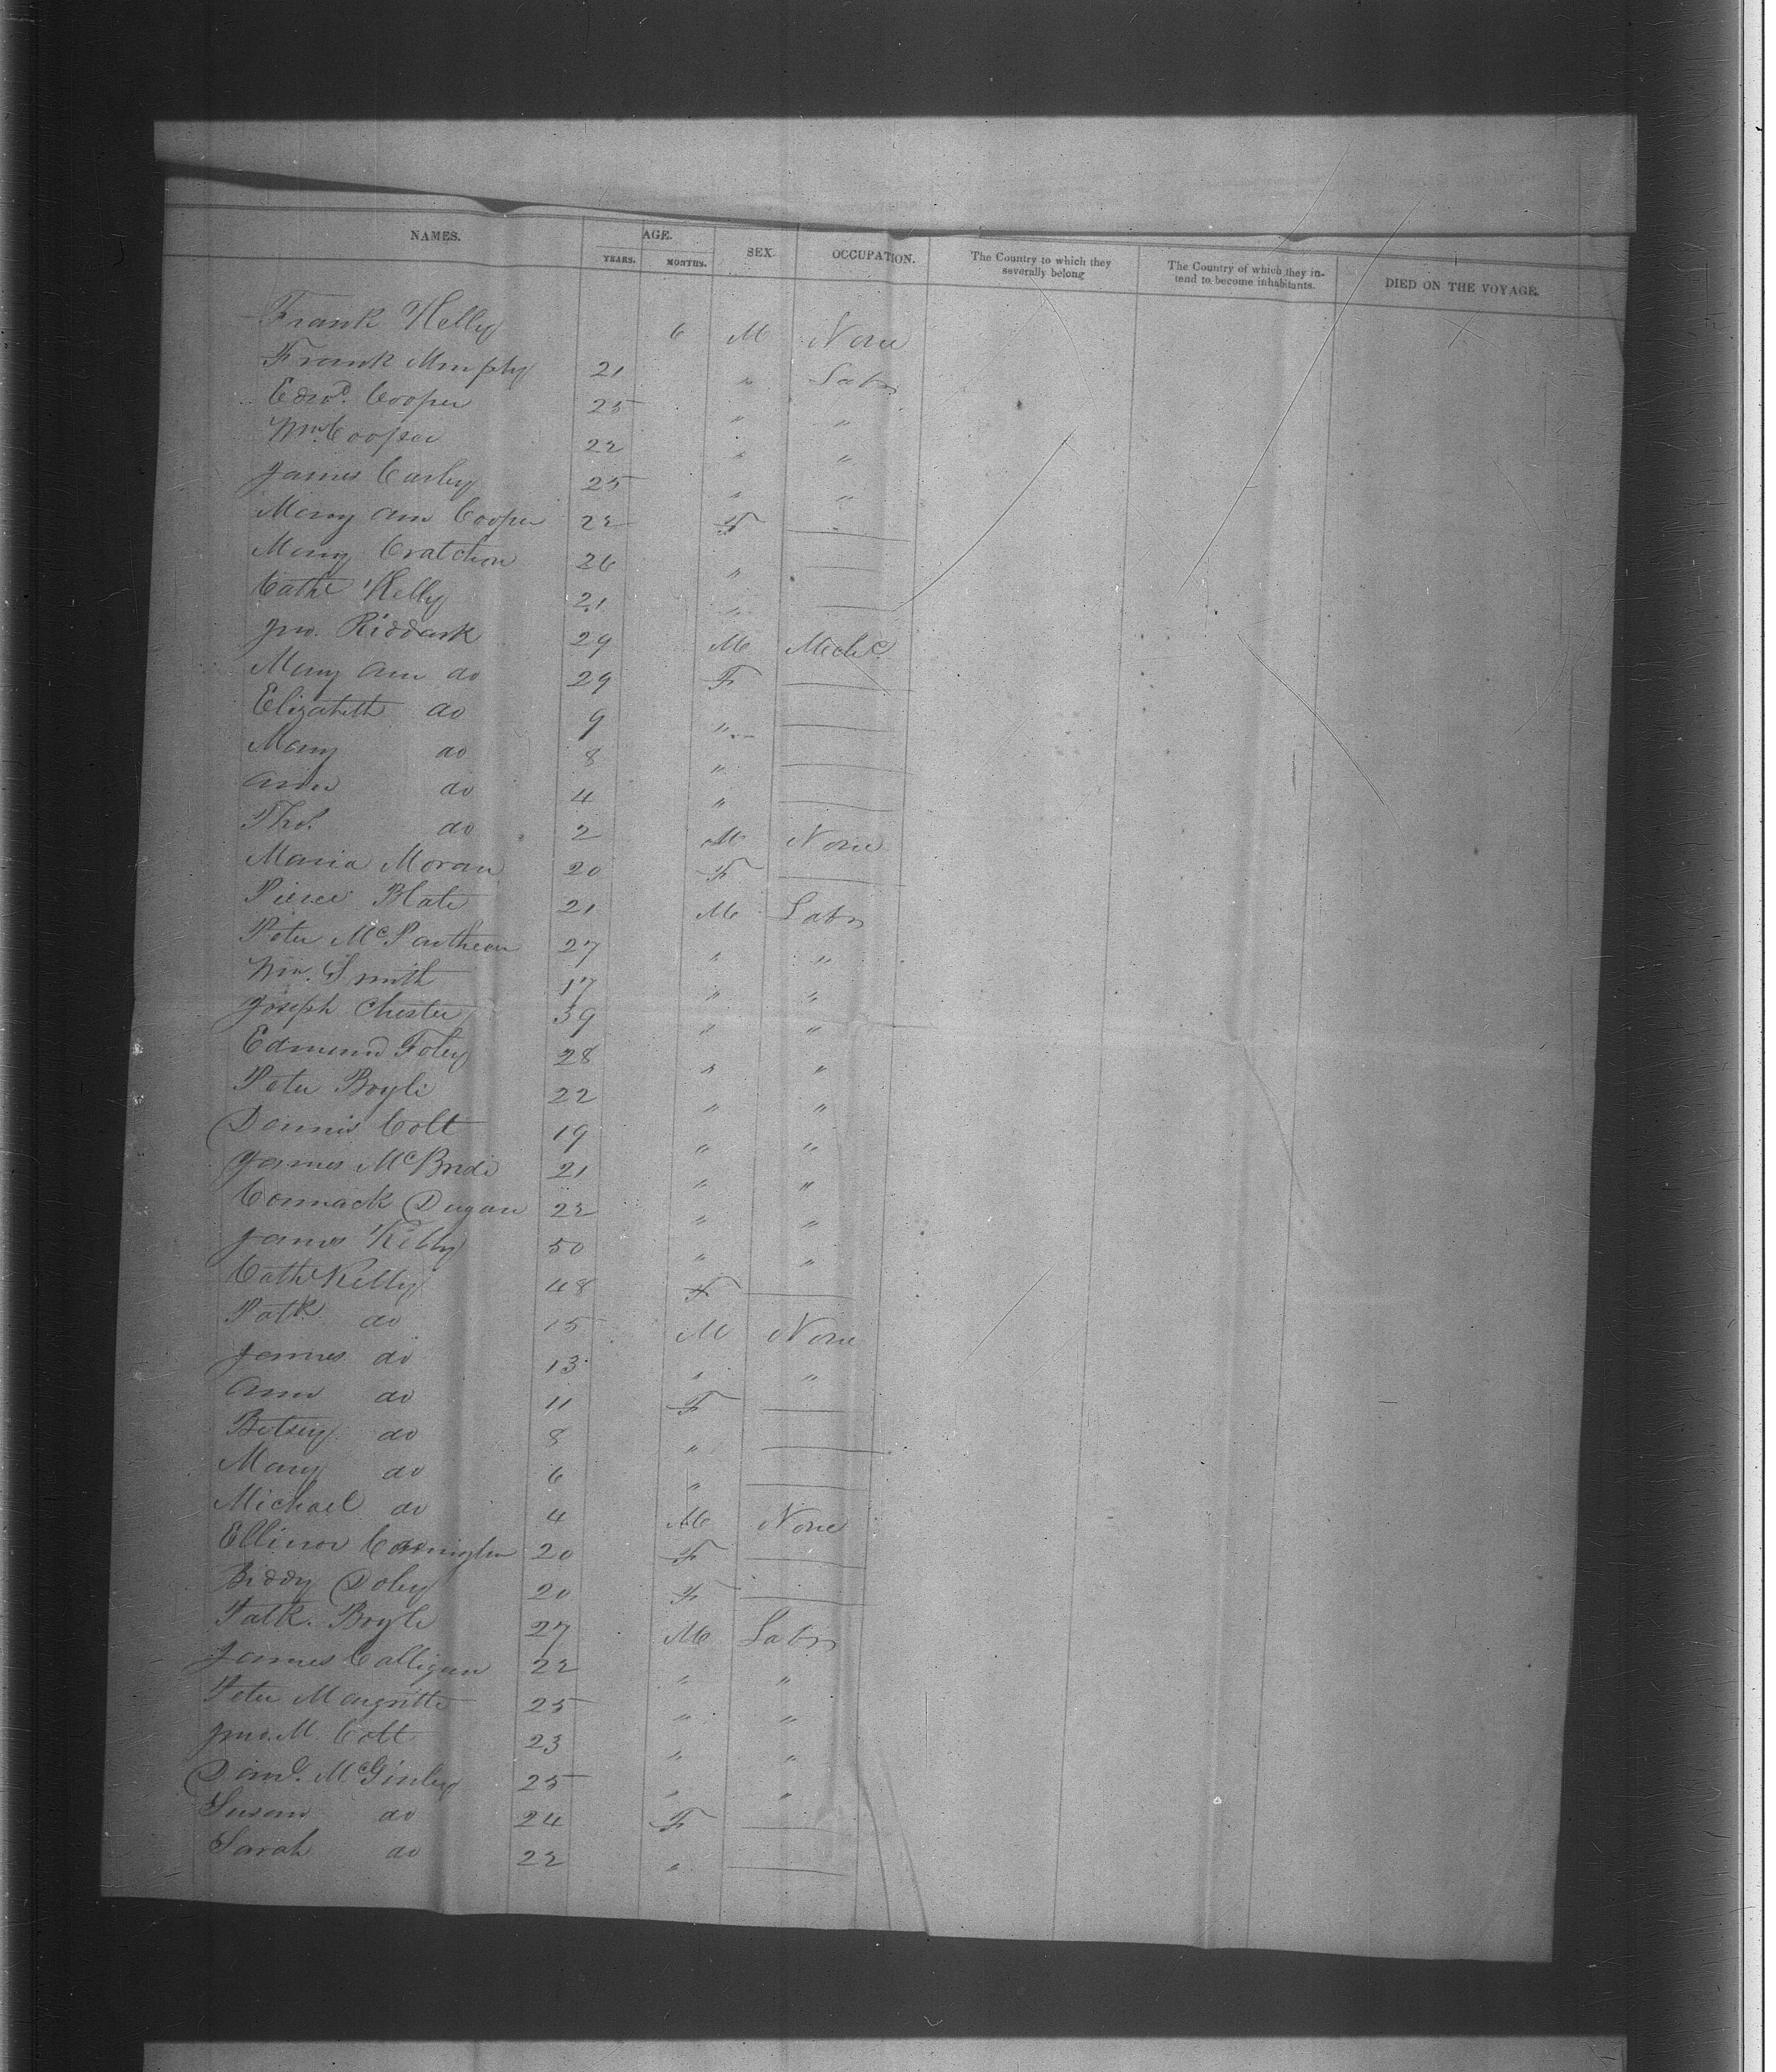 NAMES. AGE. SEX. OCCUPATION. The Country to which they severally belong The Country of which they intend to become inhabitants. DIED ON THE VOYAGE.
YEARS. MONTHS.
Frank Kelly 6 M None
Frank Murphy 21 " Labr
Edwd. Cooper 25 " "
Wm. Cooper 22 " "
James Carley 25 " "
Mary Ann Cooper 22 F
Mary 26 "
Cathe Kelly 21 "
Jno. Riddark 29 M Mechc.
Mary Ann do 29 F
Elizabeth do 9 "
Mary do 8 "
Ann do 4 "
Thos. do 2 M None
Maria Moran 20 F
Pierce Blate 21 M Labr
Peter 27 " "
Wm. Smith 17 " "
Joseph Chester 39 " "
Edmund Foley 28 " "
Peter Boyle 22 " "
Dennis Colt 19 " "
James McBride 21 " "
Connack Dugan 22 " "
James Kelly 50 " "
Cathe Kelly 48 F
Patk do 15 M None
James do 13 " "
Ann do 11 F
Betsey do 8 "
Mary do 6 "
Michael do 4 M None
Ellinor 20 F
Biddy Doley 20 F
Patk. Boyle 27 M Labr
James Calligan 22 " "
Peter 25 " "
Jno. M. Colt 23 " "
Danl. McGinley 25 " "
Susan do 24 F
Sarah do 22 "